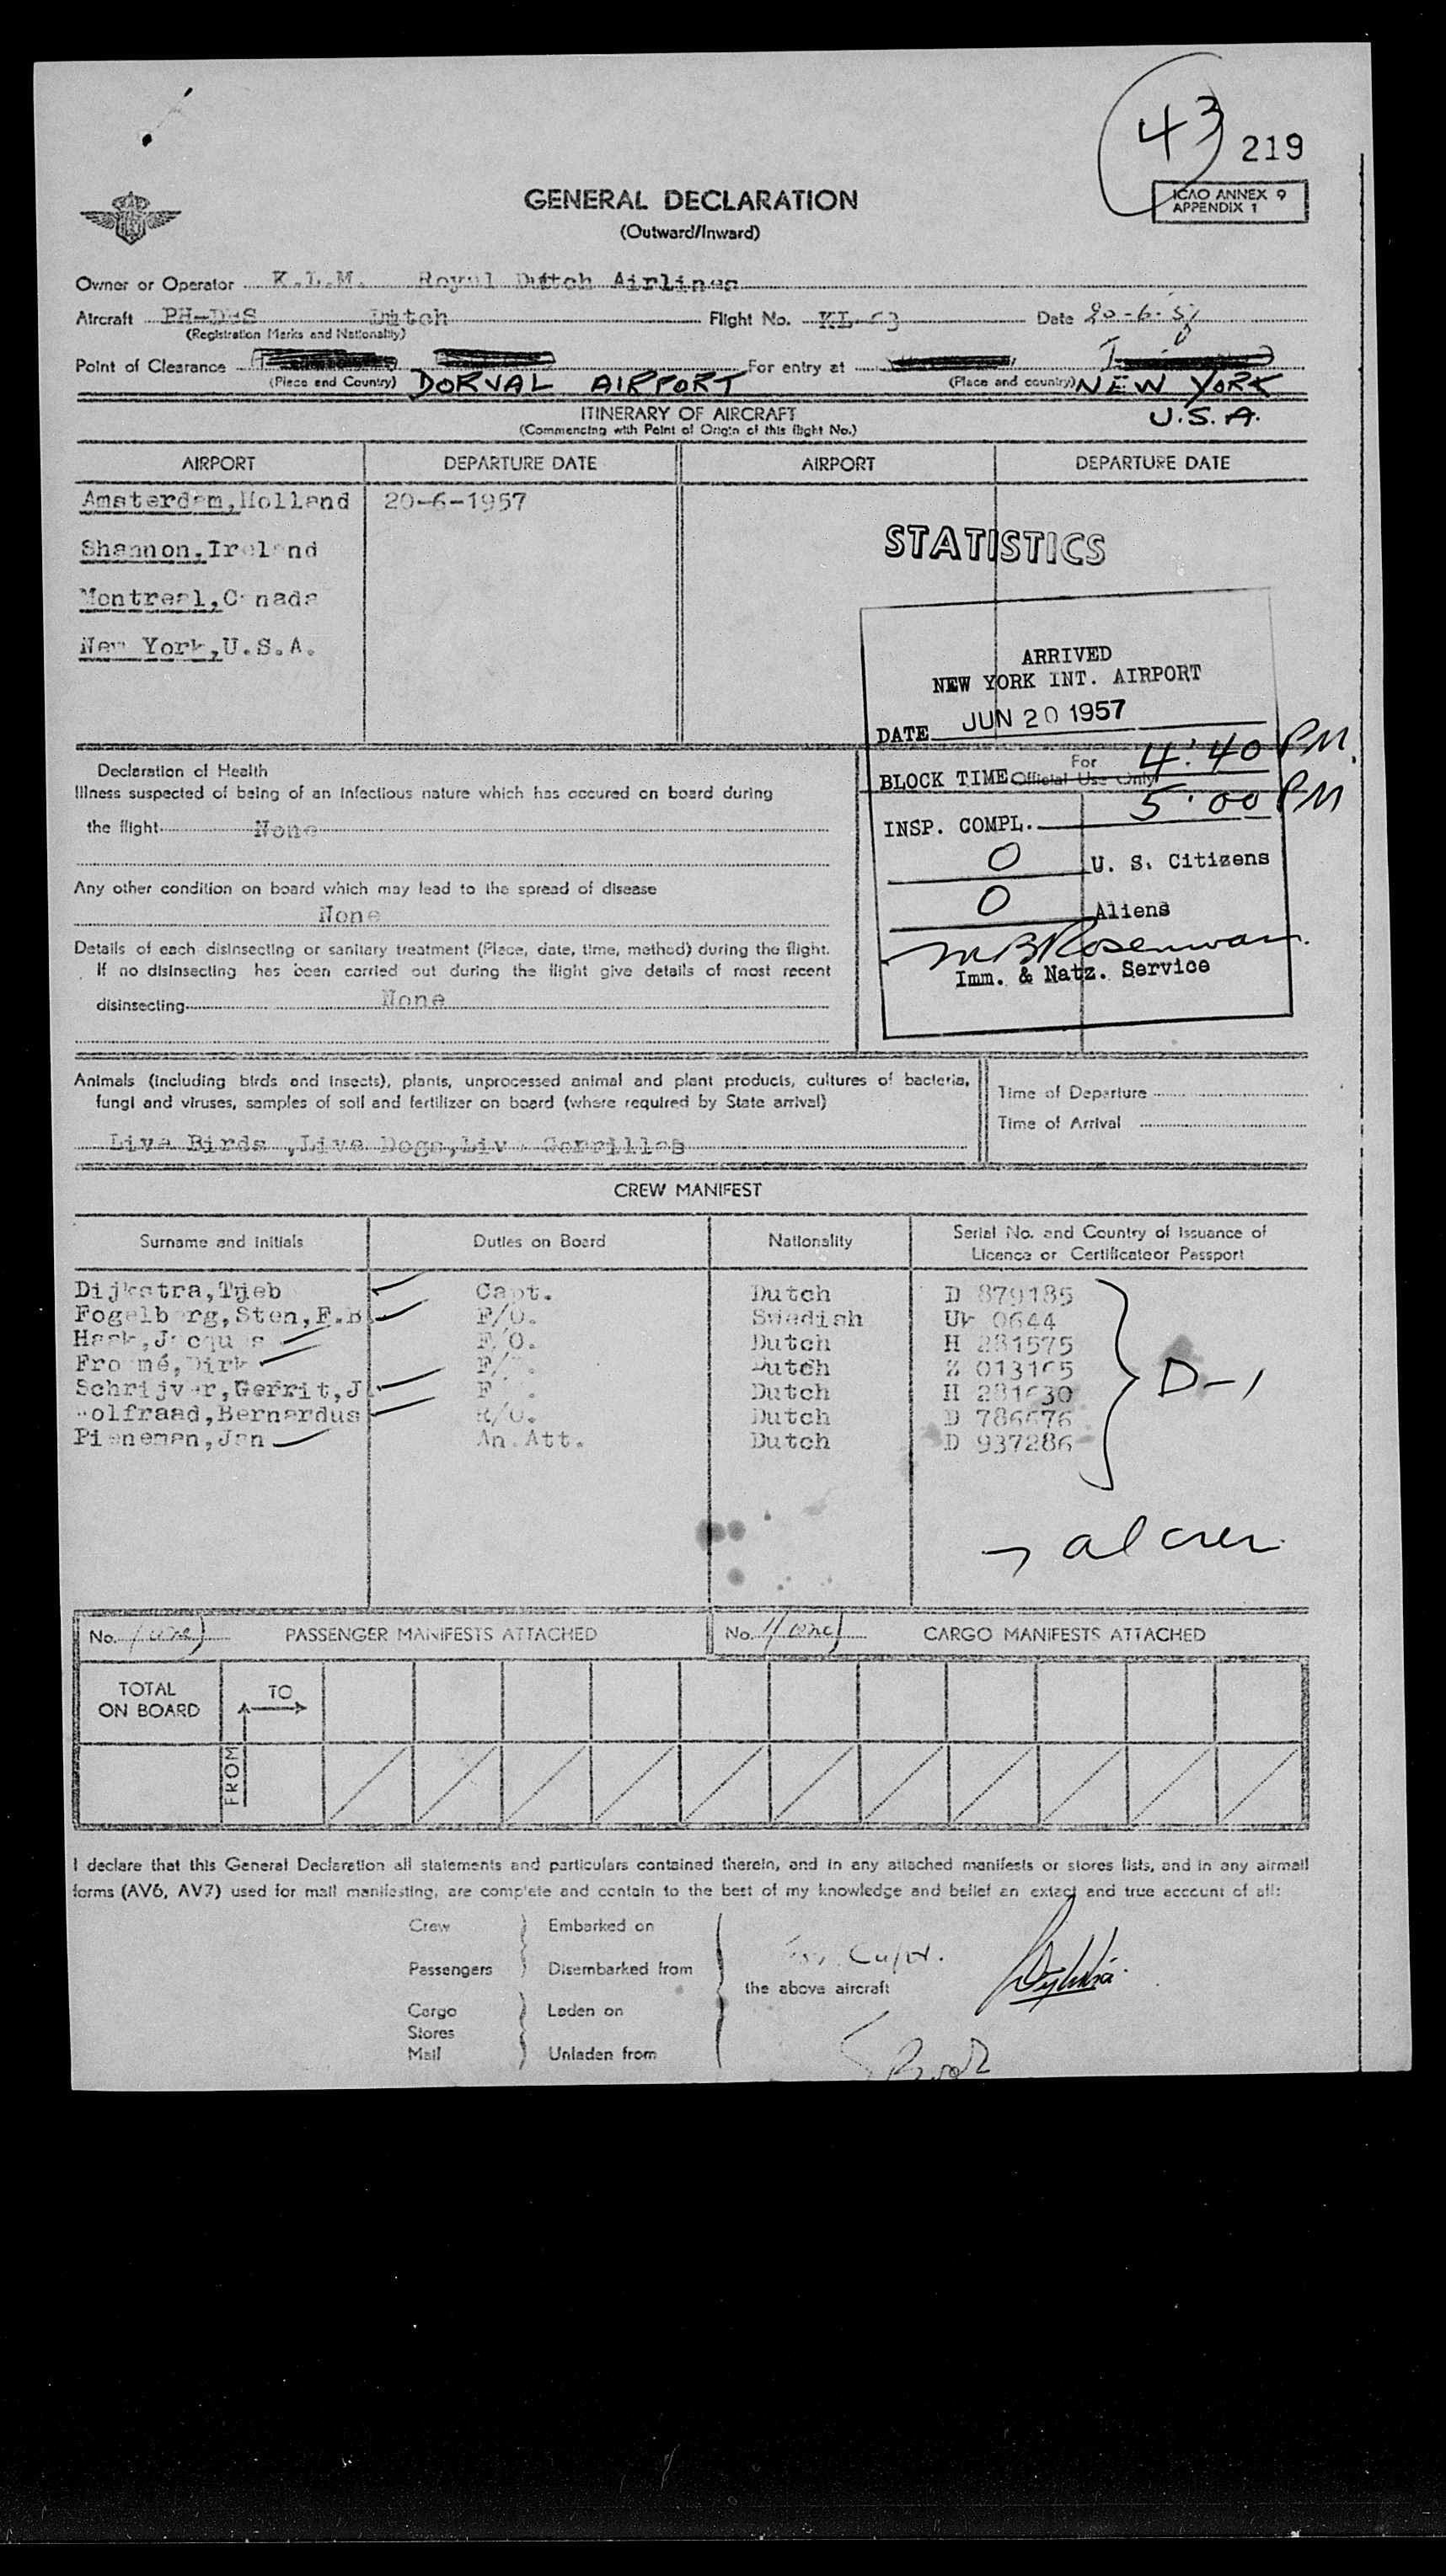 43
219
ICAO ANNEX 9
APPENDIX 1
GENERAL DECLARATION
(Outward/Inward)
Owner or Operator K.L.M. Royal Dutch Airlines
Aircraft Dutch Flight No. Date 20-6-57
(Registration Marks and Nationality)
Point of Clearance For entry at
(Place and Country) DORVAL AIRPORT (Place and country) NEW YORK
U.S.A.
ITINERARY OF AIRCRAFT
(Commencing with Point of Origin of this flight No.)
AIRPORT DEPARTURE DATE AIRPORT DEPARTURE DATE
Amsterdam,Holland 20-6-1957
STATISTICS
Shannon,Ireland
Montreal,Canada
New York,U.S.A.
ARRIVED
NEW YORK INT. AIRPORT
DATE JUN 20 1957
For
Official Use Only
BLOCK TIME 4:40 PM.
INSP. COMPL. 5:00 PM
0 U. S. Citizens
0 Aliens
Imm. & Natz. Service
Declaration of Health
Illness suspected of being of an infectious nature which has occured on board during
the flight None
Any other condition on board which may lead to the spread of disease
None
Details of each disinsecting or sanitary treatment (Place, date, time, method) during the flight.
If no disinsecting has been carried out during the flight give details of most recent
disinsecting None
Animals (including birds and insects), plants, unprocessed animal and plant products, cultures of bacteria,
fungi and viruses, samples of soil and fertilizer on board (where required by State arrival)
Live Birds ,Live Dogs,Live Gorrillas
Time of Departure
Time of Arrival
CREW MANIFEST
Surname and initials Duties on Board Nationality Serial No. and Country of Issuance of
Licence or Certificateor Passport
Dijkstra,Tjeb Capt. Dutch D 879185
Fogelberg,Sten,F.B. F/O. Swedish Uk 0644
Haak,Jacques F/O. Dutch H 281575
Dirk Dutch
Schrijver,Gerrit,J. Dutch H 281630
Bernardus R/O. Dutch D 786676
Pieneman,Jan An.Att. Dutch D 937286
D-1
7 al crew
No. 1(one) PASSENGER MANIFESTS ATTACHED No. 1(one) CARGO MANIFESTS ATTACHED
TOTAL
ON BOARD
TO
FROM
I declare that this General Declaration all statements and particulars contained therein, and in any attached manifests or stores lists, and in any airmail
forms (AV6, AV7) used for mail manifesting, are complete and contain to the best of my knowledge and belief an extact and true account of all:
Crew Embarked on
Passengers Disembarked from
the above aircraft
Cargo Laden on
Stores
Mail Unladen from